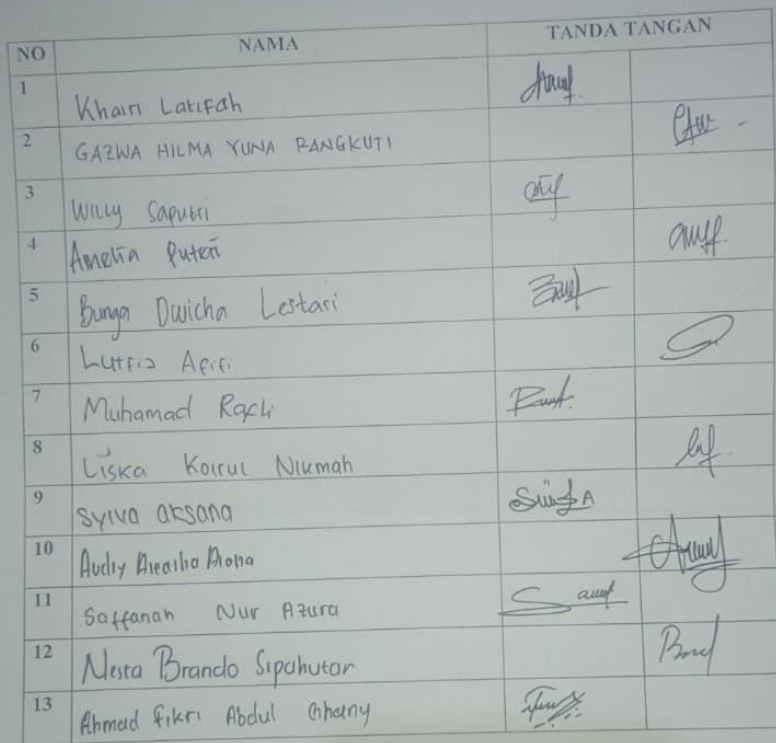 NO NAMA TANDA TANGAN
1 Khairi Latifah
2 GAZWA HILMA YUNA RANGKUTI
3 Willy Saputri
4 Amelia Puteri
5 Bunga Dwicha Lestari
6 Lutfia Afifi
7 Muhamad
8 Liska Koirul Nikmah
9 Sylva aksana
10
11 Saffanah Nur Azura
12 Nesta Brando Sipahutar
13 Ahmad Fikri Abdul Ghany